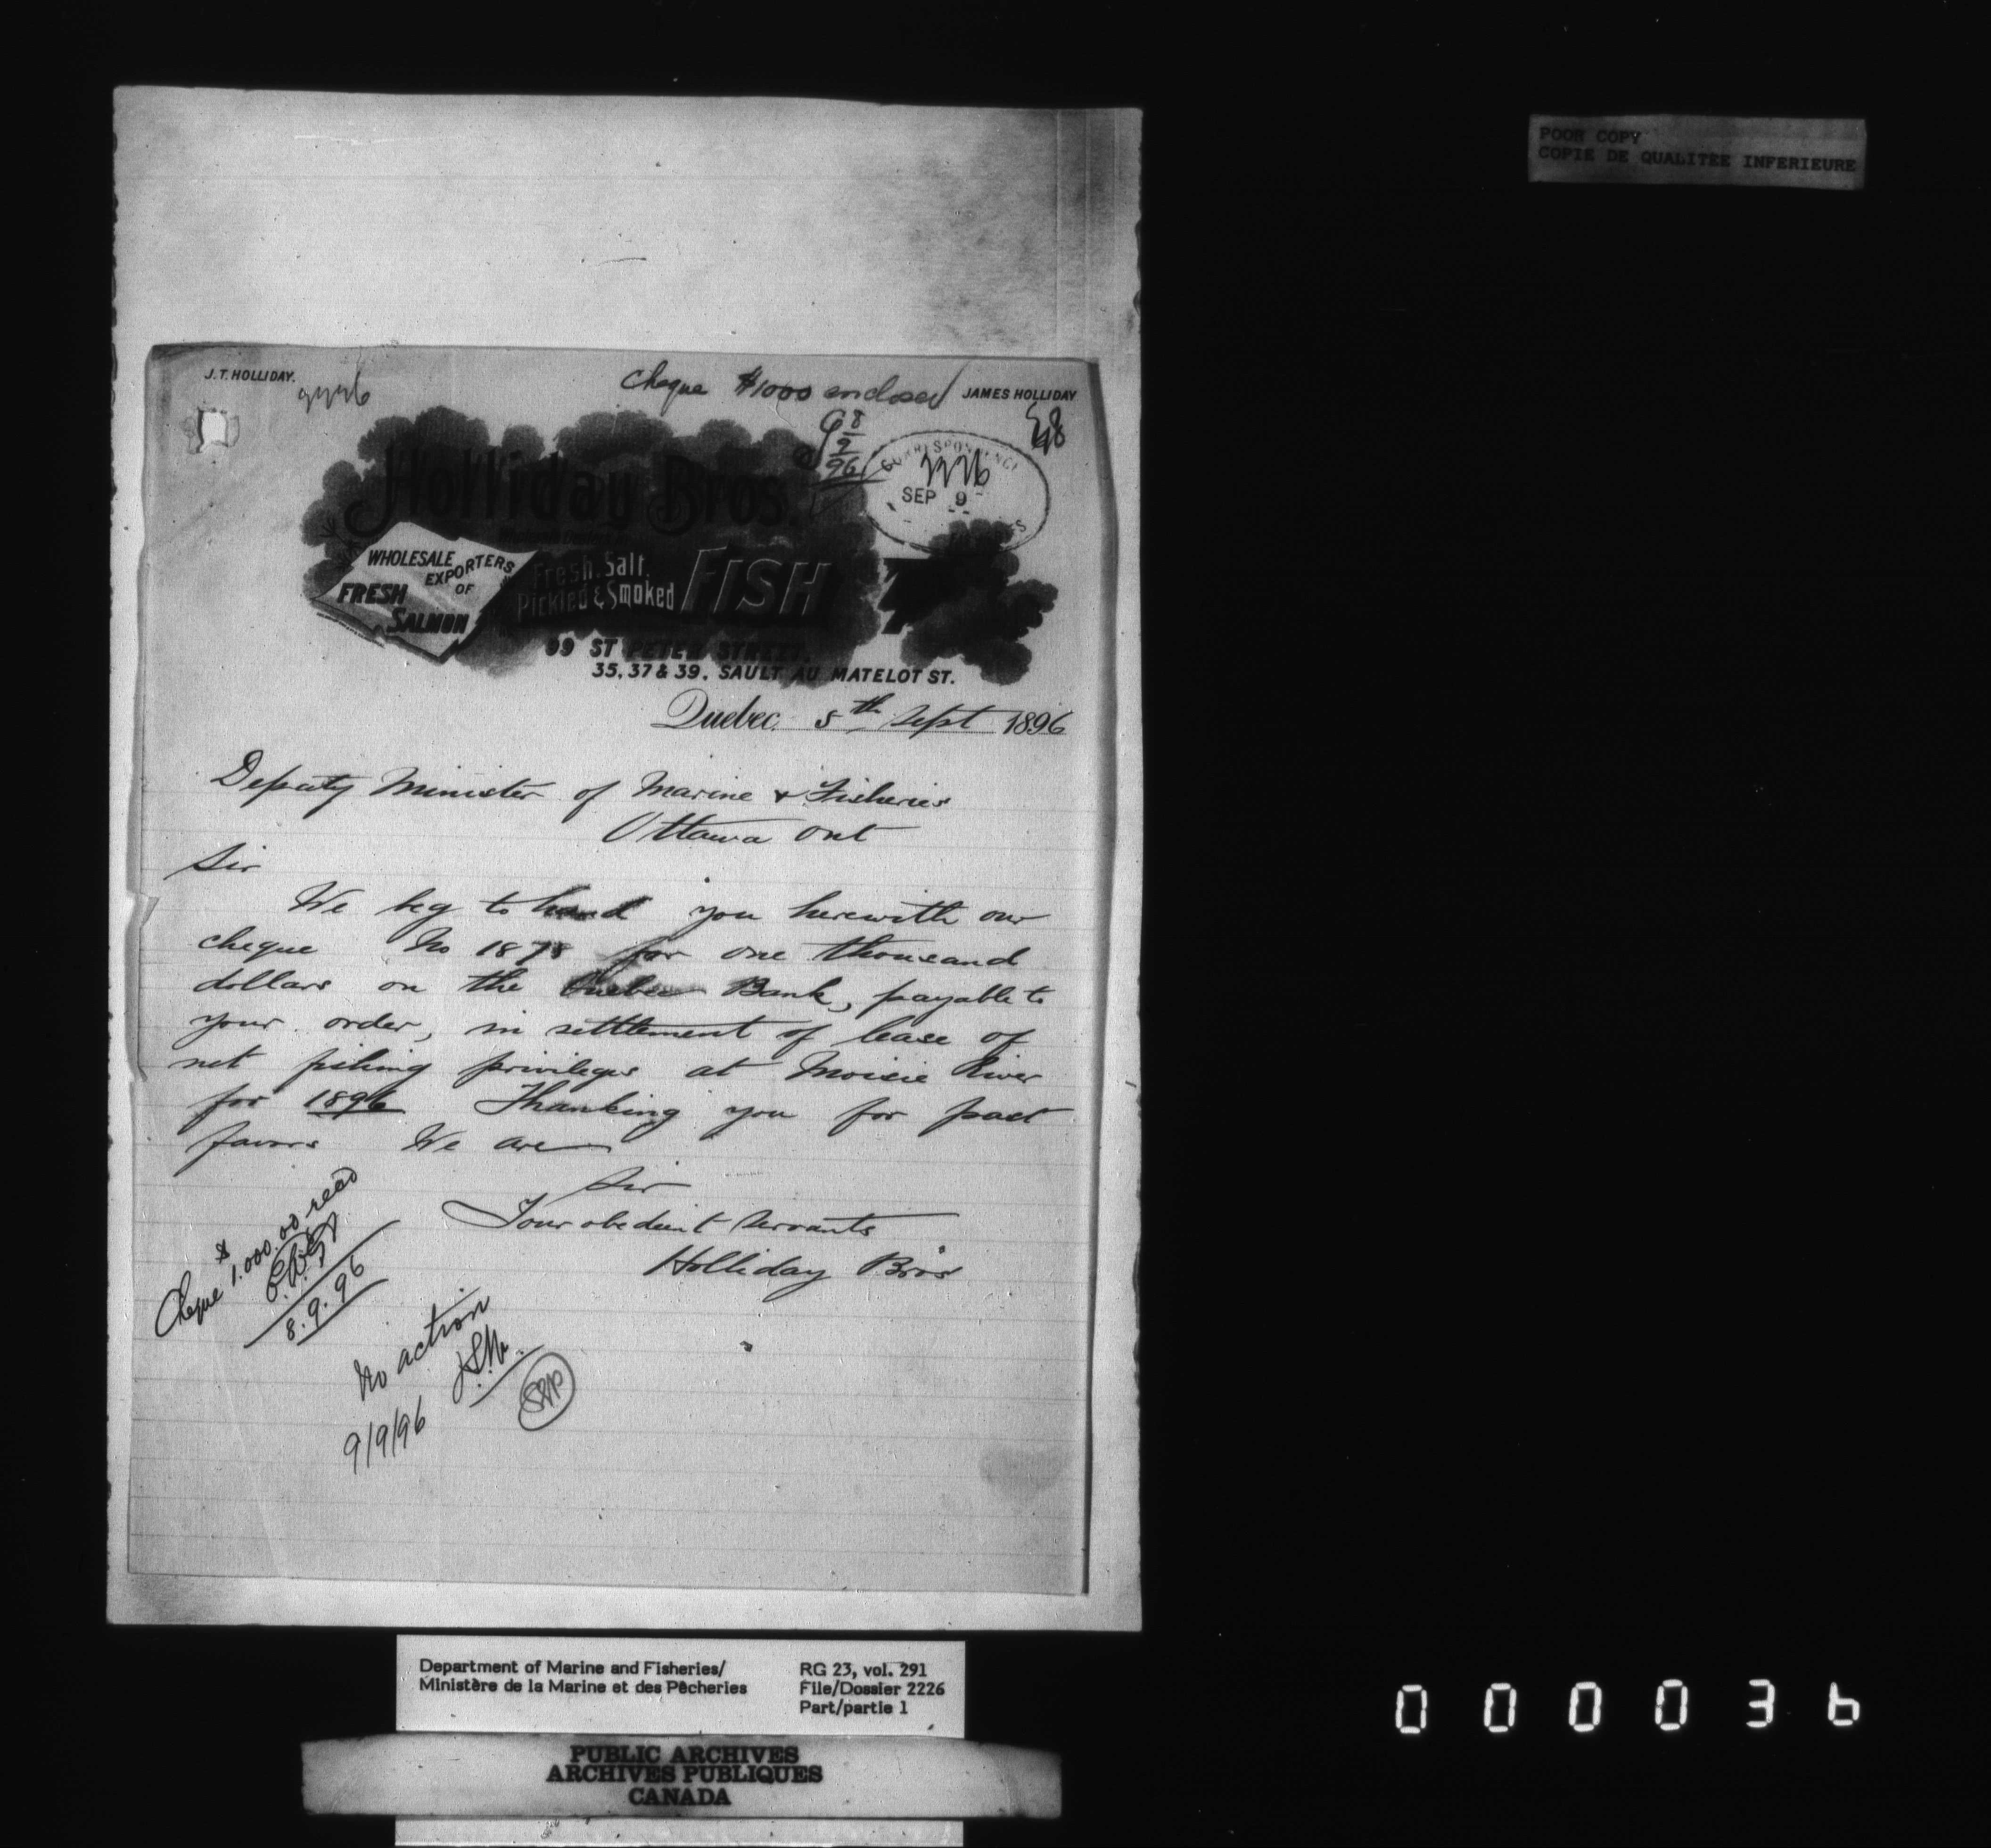 POOR COPY
COPIE DE QUALITEE INFERIEURE
J.T. HOLLIDAY.
2226
Cheque $1000 enclosed
JAMES HOLLIDAY
8
9
96
CORRESPONDENCE
2226
SEP 9
Holliday Bros.
Wholesale Dealers in
WHOLESALE
EXPORTERS
OF
FRESH
SALMON
Fresh, Salt,
Pickled & Smoked
FISH
99 ST PETER STREET,
35, 37 & 39, SAULT AU MATELOT ST.
Quebec. 5th Sept 1896
Deputy Minister of Marine & Fisheries
Ottawa Ont
Sir
We beg to hand you herewith our
cheque No 1878 for one thousand
dollars on the Quebec Bank, payable to
your order, in settlement of lease of
net fishing privileges at Moisie River
for 1896 Thanking you for past
favors We are
Sir
Your obedient Servants
Holliday Bros
Cheque $1.000.00 recd
8.9.96
No action
9/9/96
Department of Marine and Fisheries/
Ministère de la Marine et des Pêcheries
RG 23, vol. 291
File/Dossier 2226
Part/partie 1
PUBLIC ARCHIVES
ARCHIVES PUBLIQUES
CANADA
000036